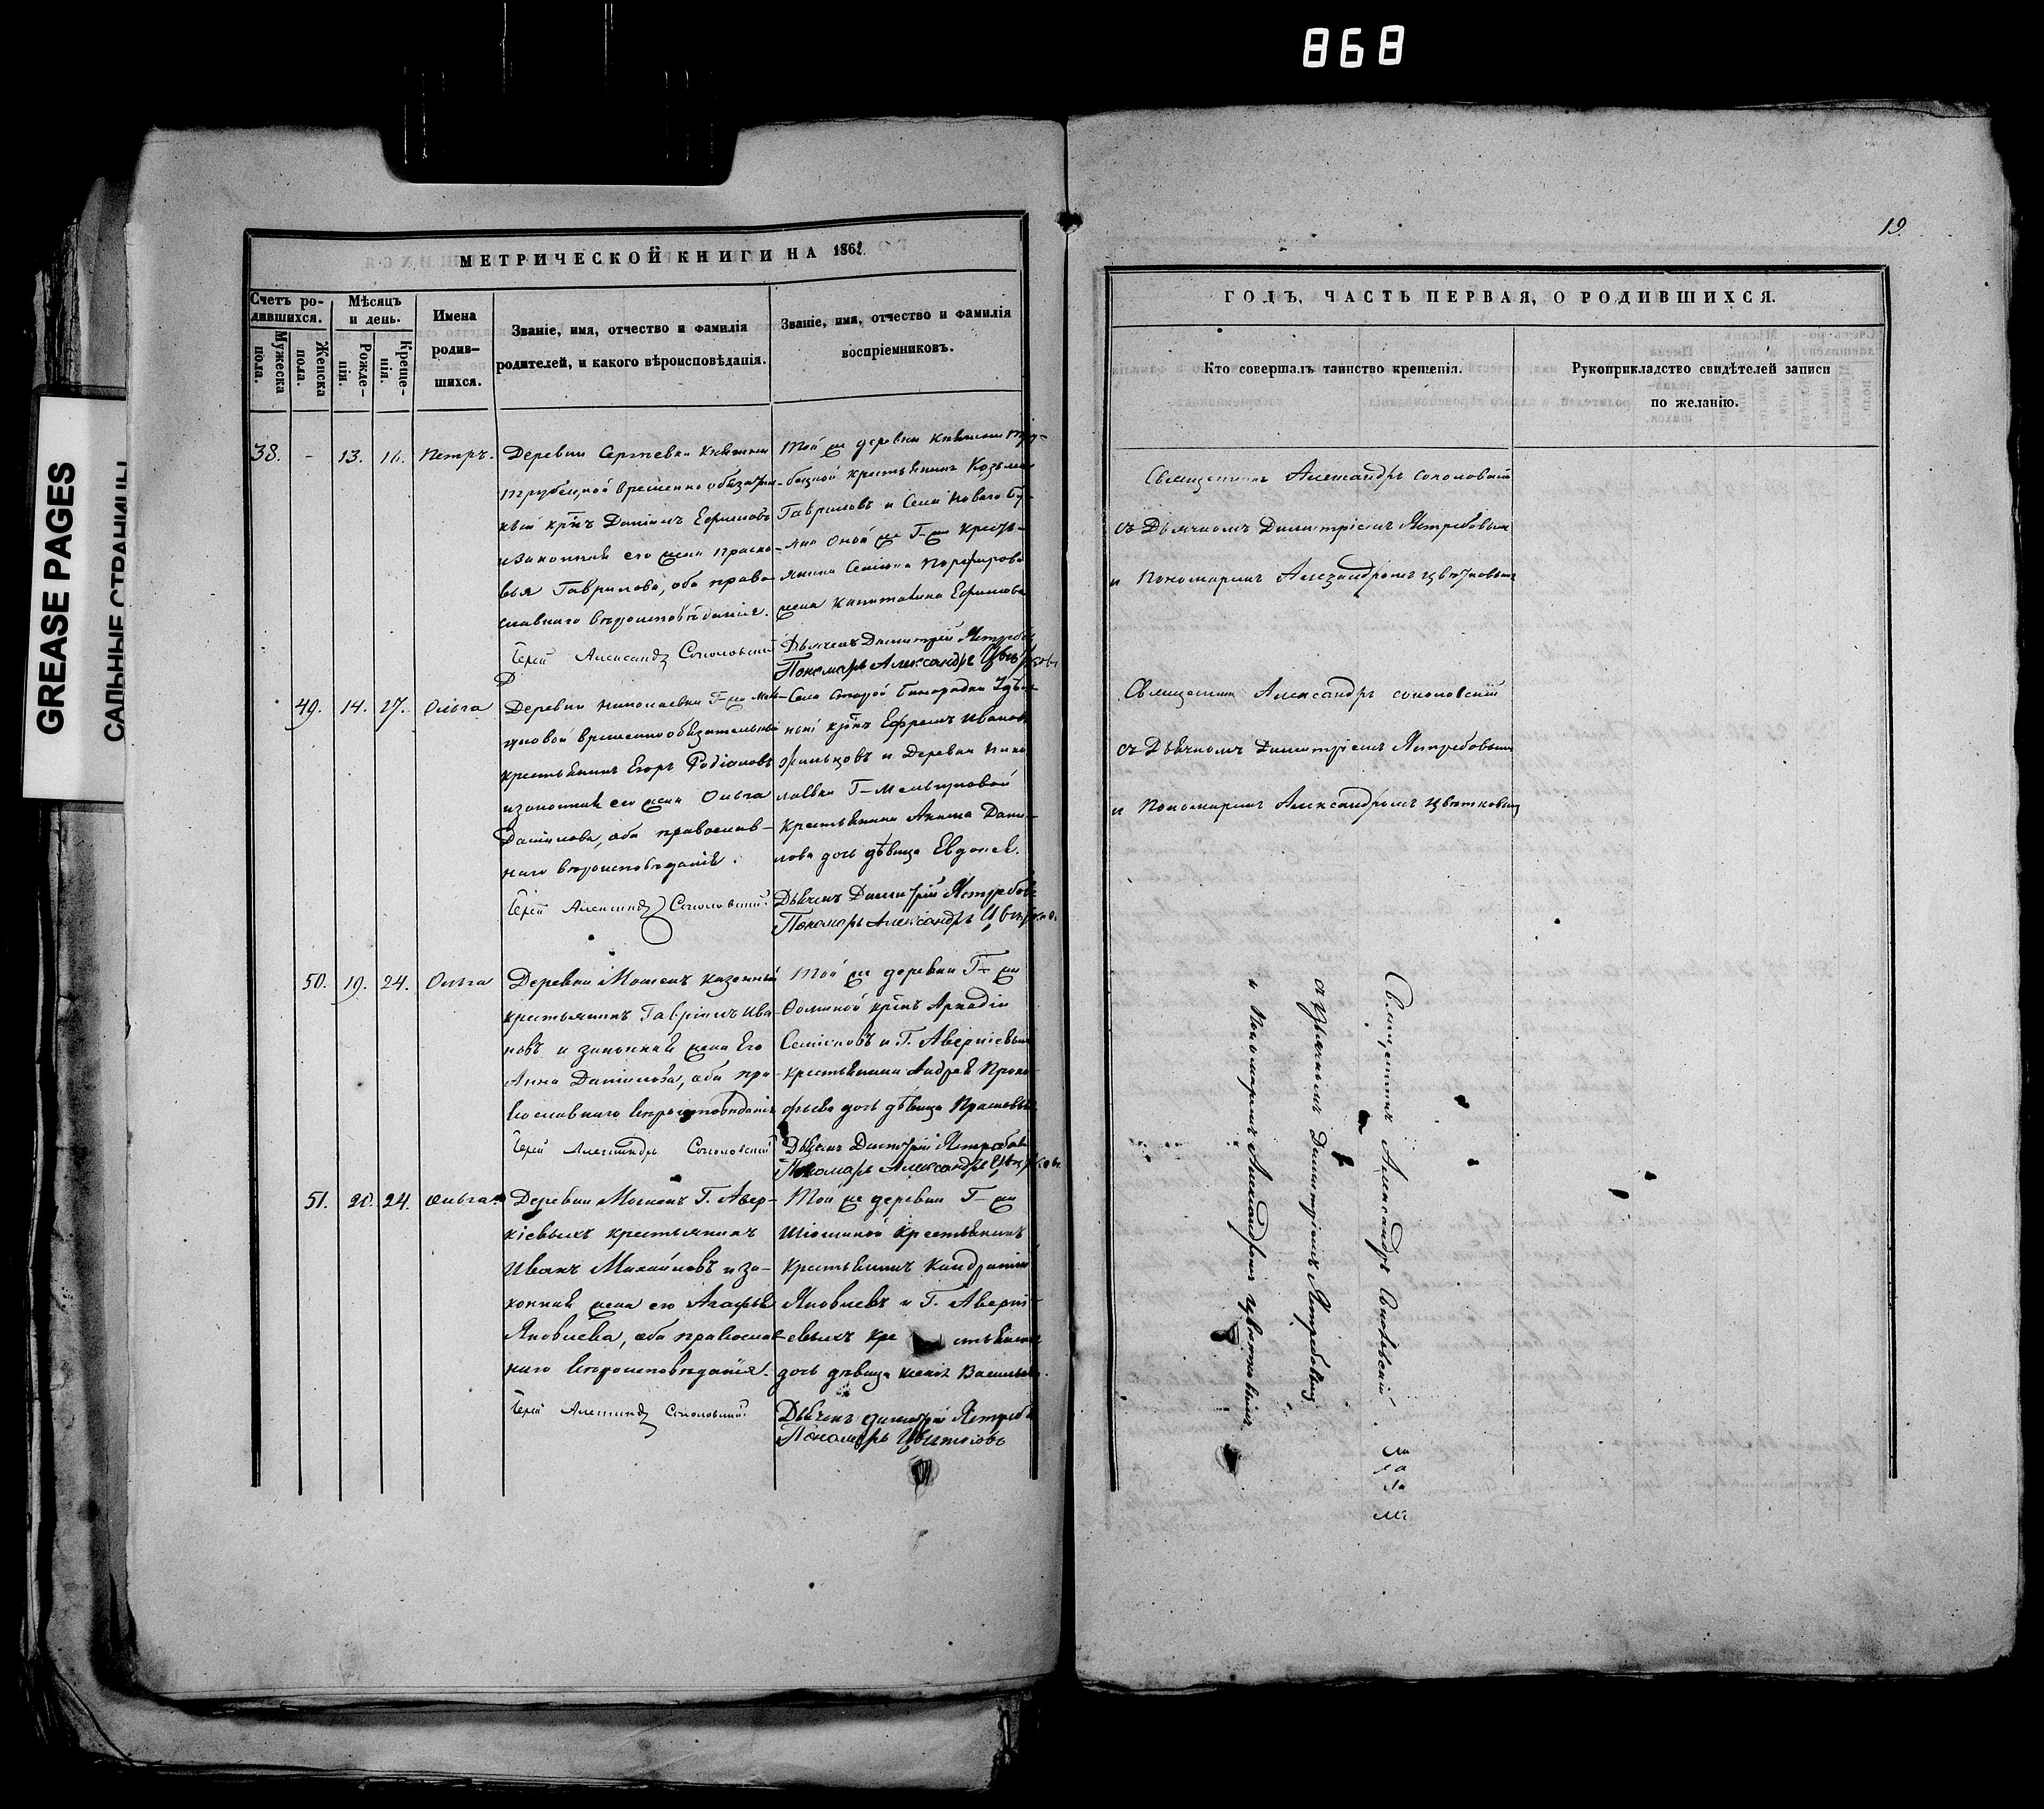 868
GREASE PAGES
САЛЬНЫЕ СТРАНИЦЫ
МЕТРИЧЕСКОЙ КНИГИ НА 1862
Счетъ ро-
дившихся.
Мужеска
пола.
Женска
пола.
Мѣсяцъ
и день.
Рожде-
нія.
Креще-
нія.
Имена
родив-
шихся.
Званіе, имя, отчество и фамилія
родителей, и какого вѣроисповѣданія.
Званіе, имя, отчество и фамилія
воспріемниковъ.
38. - 13. 16. Петръ.
Деревни Сергиевки Княгини
Трубецкой временно обязатель-
ный крнъ Даніилъ Ефимовъ
и законная его жена Праско-
вья Гаврилова, оба право-
славнаго вѣроисповѣданія.
Іерей Александръ Соколовскій
Той же деревни Княгини Тру-
бецкой крестьянинъ Козьма
Гавриловъ и Села Новаго
оной же Г-жи кресть-
янина Порфирова
жена Капитолина Ефимова
Дьячекъ Димитрій Ястребовъ
Пономарь Александръ Цвѣтковъ
49. 14. 27. Ольга
Деревни Николаевки Г-жи Мель-
гуновой временнообязательный
крестьянинъ Егоръ Родіоновъ
и законная его жена Ольга
Даніилова, оба православ-
наго вѣроисповѣданія.
Іерей Александръ Соколовскій.
Села Старой Бинарадки Удѣль-
ный крнъ Ефремъ Ивановъ
Жильцовъ и Деревни Нико-
лаевки Г-жи Мельгуновой
крестьянина Дани-
лова дочь дѣвица Евдокія.
Дьячекъ Димитрій Ястребовъ
Пономарь Александръ Цвѣтковъ
50. 19. 24. Ольга
Деревни Мошекъ казенный
крестьянинъ Гавріилъ Ива-
новъ и законная жена его
Анна Даніилова, оба пра-
вославнаго вѣроисповѣданія
Іерей Александръ Соколовскій
Той же деревни Г-жи
Фоминой крнъ Аркадій
Семеновъ и Г. Аверкіевыхъ
крестьянина Андрея Проко-
фьева дочь дѣвица Прасковья
Дьячекъ Димитрій Ястребовъ
Пономарь Александръ Цвѣтковъ
51. 20. 24. Ольга
Деревни Мошекъ Г. Авер-
кіевыхъ крестьянинъ
Иванъ Михайловъ и за-
конная жена его Агафья
Яковлева, оба православ-
наго вѣроисповѣданія.
Іерей Александръ Соколовскій
Той же деревни Г-жи
крестьянинъ
крестьянинъ Кондратій
Яковлевъ и Г. Аверкі-
евыхъ кре стьянина
дочь дѣвица Ксенія Васильева.
Дьячекъ Димитрій Ястребовъ
Пономарь Цвѣтковъ
19.
ГОДЪ, ЧАСТЬ ПЕРВАЯ, О РОДИВШИХСЯ.
Кто совершалъ таинство крещенія.
Рукоприкладство свидѣтелей записи
по желанію.
Священникъ Александръ Соколовскій
съ Дьячкомъ Димитріемъ Ястребовымъ
и Пономаремъ Александромъ Цвѣтковымъ
Священникъ Александръ Соколовскій
съ Дьячкомъ Димитріемъ Ястребовымъ
и Пономаремъ Александромъ Цвѣтковымъ
Священникъ Александръ Соколовскій.
съ Дьячкомъ Димитріемъ Ястребовымъ
и Пономаремъ Александромъ Цвѣтковымъ.